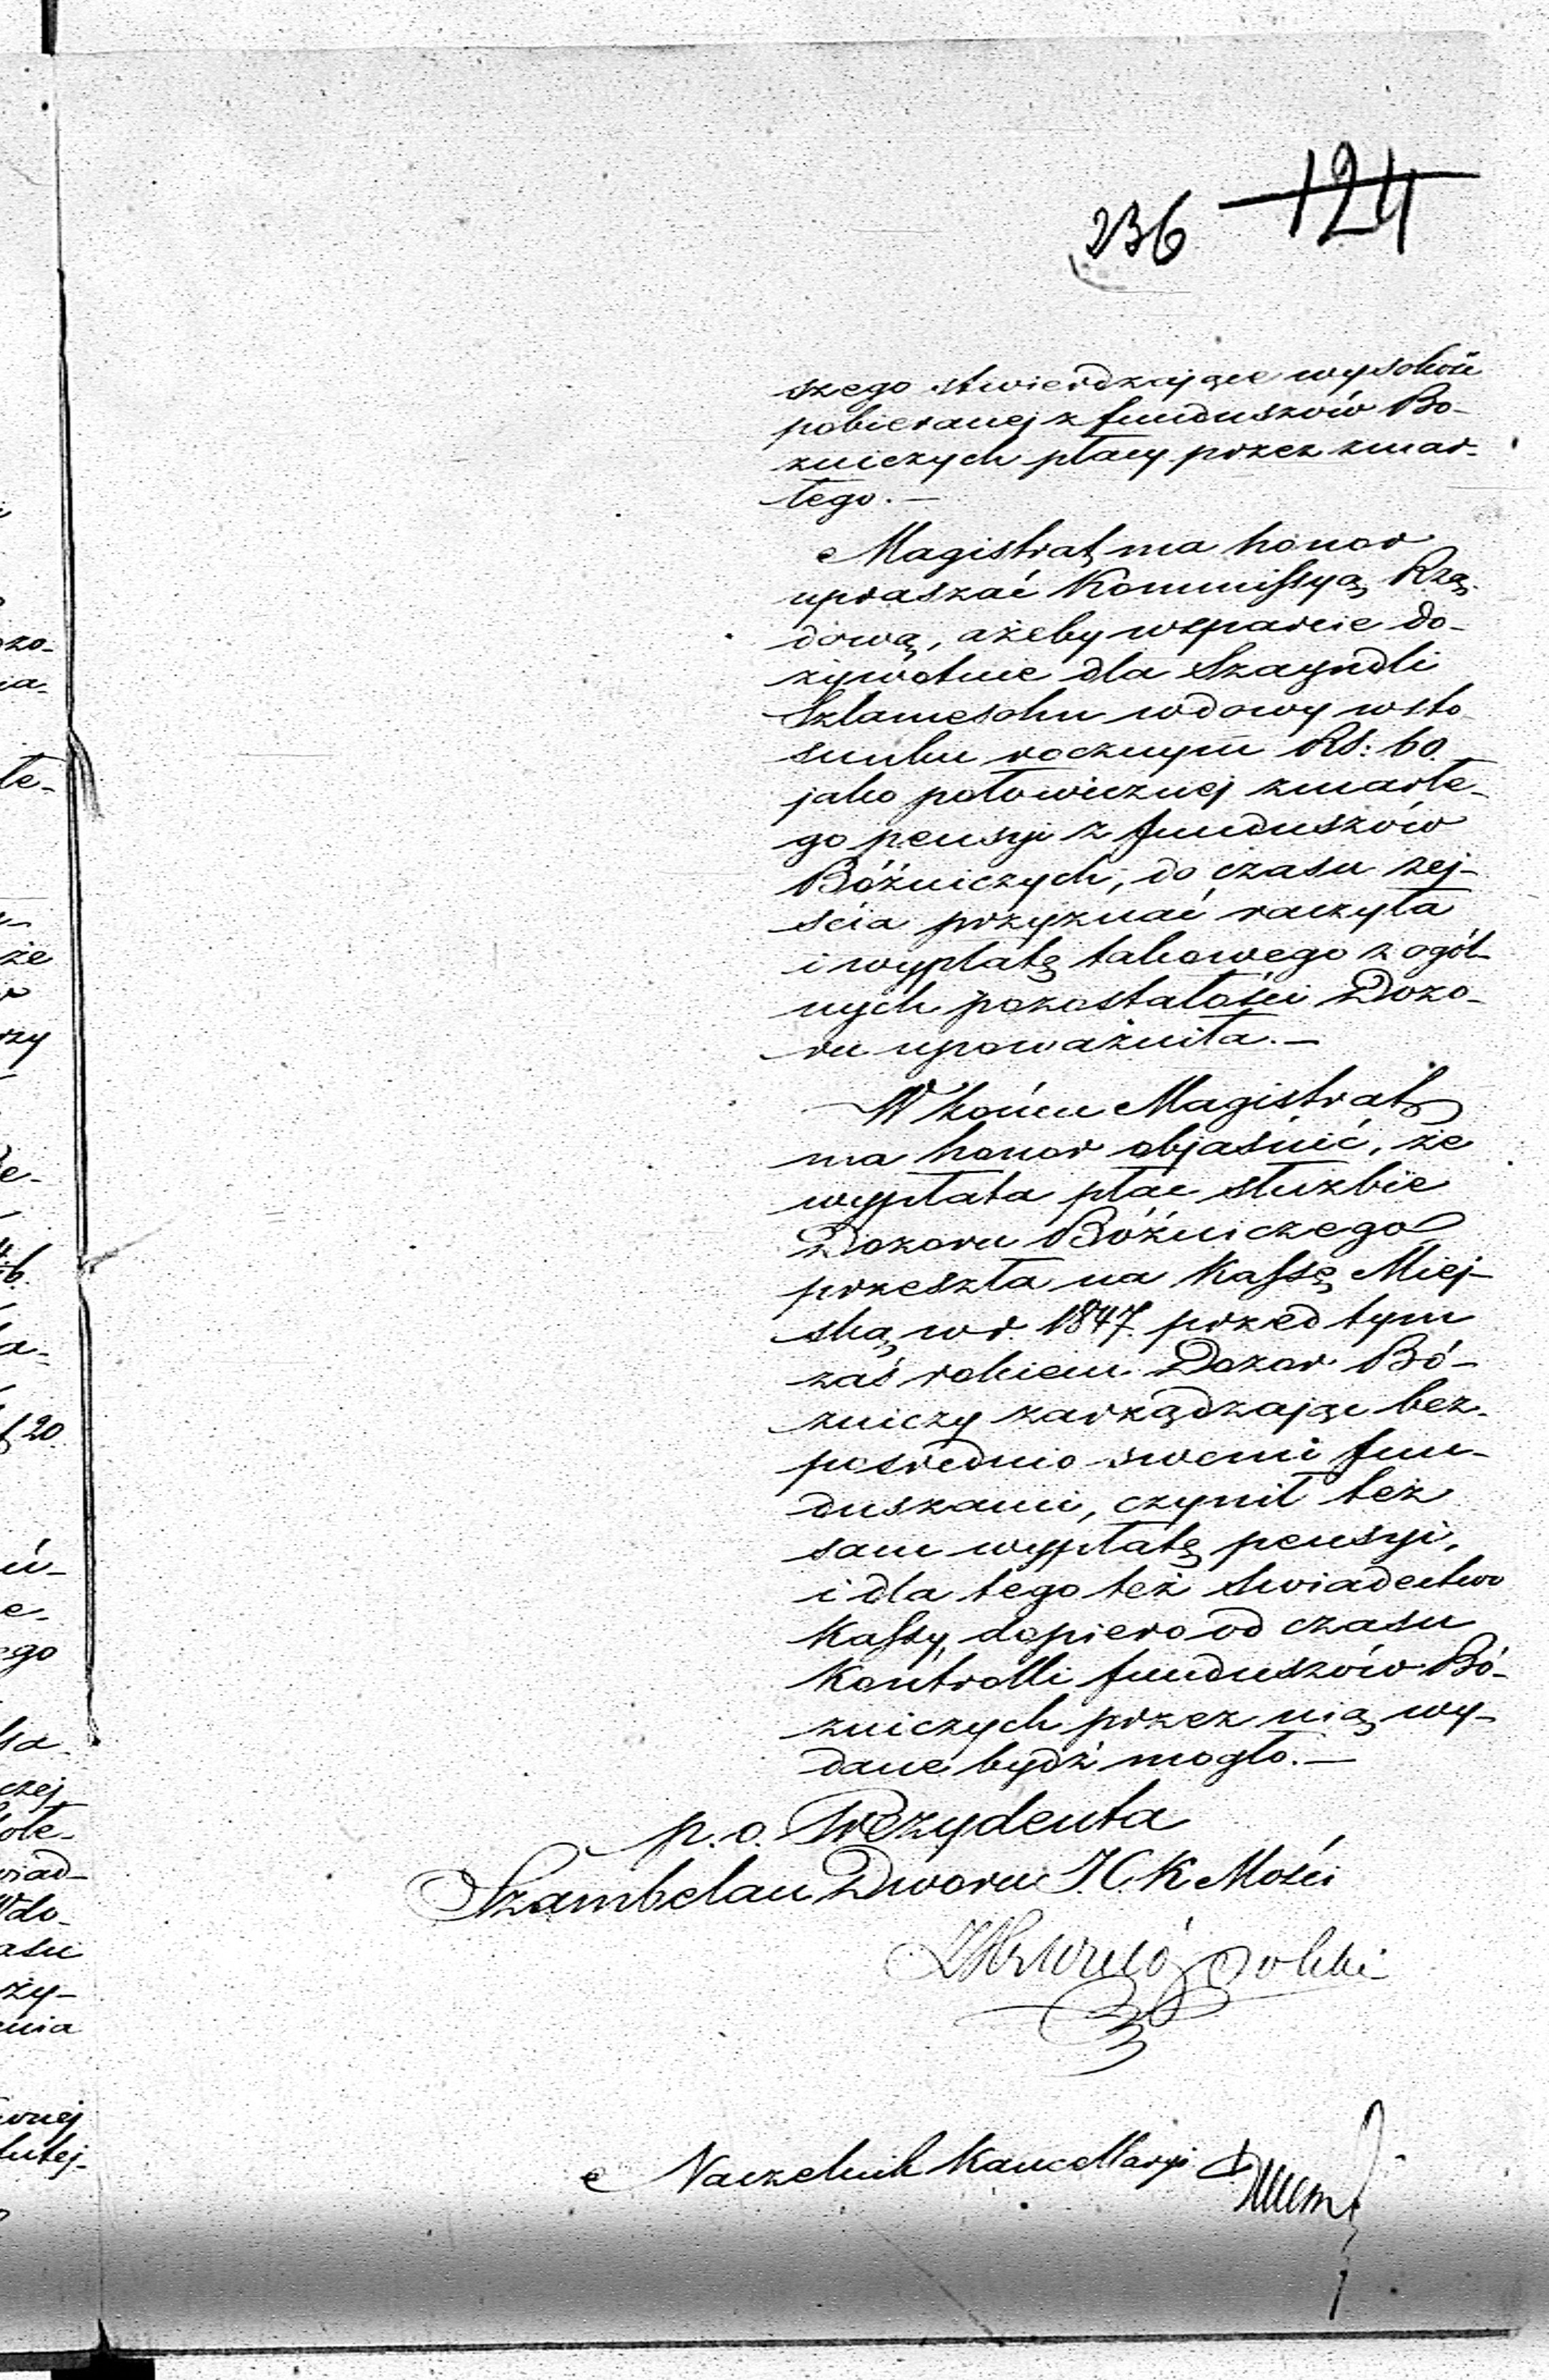 236 124
szego stwierdzające wysokość
pobieranej z funduszów Bo-
zniczych płacy przez zmar-
łego.—
Magistrat ma honor
upraszać Kommissyą Rzą-
dową, ażeby wsparcie do-
żywotnie dla Szayndli
Szlamesohn wdowy w sto-
sunku rocznym Rs: 60.
jako połowicznej zmarłe-
go pensyi z funduszów
Bóżniczych, do czasu zej-
ścia przyznać raczyła
i wypłatę takowego z ogól-
nych pozostałości Dozo-
ru upoważniła.—
W końcu Magistrat
ma honor objaśnić, że
wypłata płac służbie
Dozoru Bóżniczego
przeszła na Kassę Miej-
ską w r. 1847. przed tym
zaś rokiem Dozor Bó-
zniczy zarządzając bez-
posrednio swemi fun-
duszami, czynił też
sam wypłatę pensyi,
i dla tego też świadectwo
Kassy dopiero od czasu
Kontrolli funduszów Bó-
zniczych przez nią wy-
dane bydź mogło.—
p. o. Prezydenta
Szambelan Dworu J. C. K Mości
Naczelnik Kancellaryi
zo-
ia-
łe-
że
rzy
e-
6.
a-
20.
ú-
e-
ego
czej
ote-
wiad-
Wdo-
asu
ży-
enia
wnej
tutej-